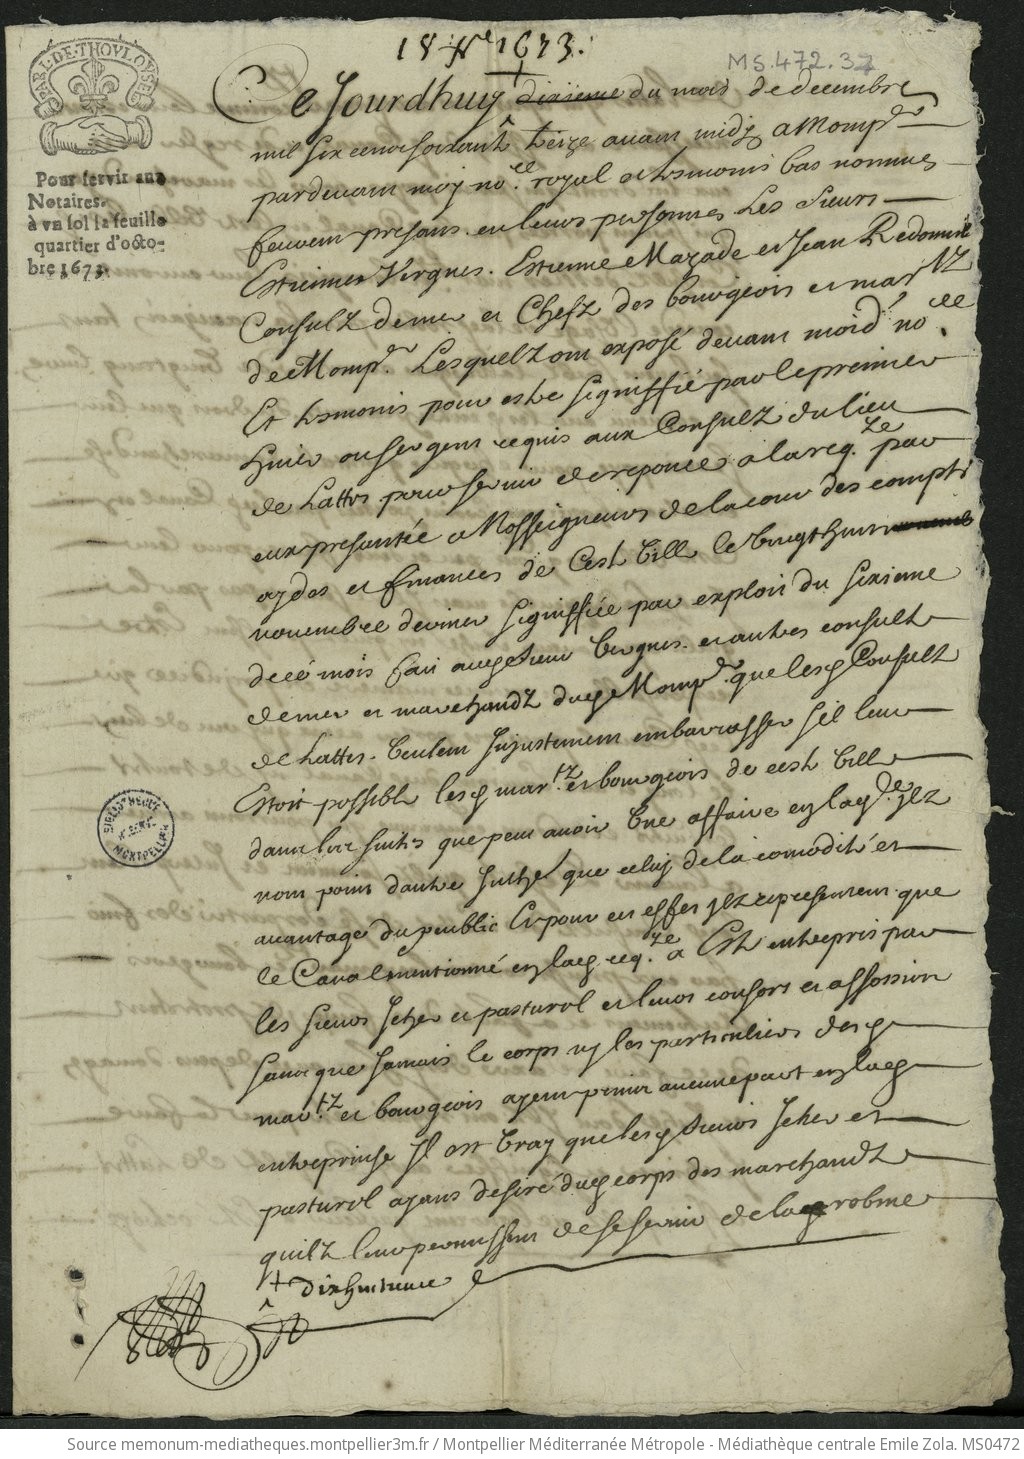 18 xbre 1673.
MS.472.37
PARL·DE·THOVLOVSE
Pour servir aux
Notaires.
à vn sol la feuille
quartier d'octo-
bre 1673.
Ce Jourdhuy dixieme du mois de decembre
mil six cens soixante treize avant midy a Mompr
pardevant moy nore royal et tesmoins bas nommes
feurent presans en leurs personnes Les Sieurs
Estienne Vergnes. Estienne Mazade et Jean Redomié
Consulz de mer et Chefz des bourgeois et martz
de Mompr. Lesquelz ont exposé devant moid' nore
Et tesmoins pour estre signiffié par le premier
huier ou sergent requis aux Consulz du lieu
de Lattes pour servir de reponce a la reqte par
eux presantée a Nosseigneurs de la cour des comptes
aydes et finances de Ceste Ville le vingt huit
novembre dernier signiffiée par exploit du sixieme
de ce mois fait aud sieur Vergnes. et autres consulz
de mer et marchandz dud Mompr. que lesd Consulz
de Lattes. Veulent Injustement embarrasser sil leur
Estoit possible lesd martz et bourgeois de ceste Ville
dans les suites que peut avoir Une affaire en laqle jlz
nont point dautre Inthé que celuy de la comodité et
avantage du public Et pour cet effet jlz representent que
le Canal mentionné en lad reqte a Esté entrepris par
les sieurs Jeher et pasturel et leurs consors et assossies
sans que Jamais le corps ny les particuliers desd
martz et bourgeois ayent prins aucune part en lad
entreprinse Il est Vray que lesd sieurs Jeher et
pasturel ayans desiré dud corps des marchandz
quilz leur permissent de se servir de la robme
+ dixhuitieme
BIBLIOTHEQUE
MONTPELLIER
Source memonum-mediatheques.montpellier3m.fr / Montpellier Méditerranée Métropole - Médiathèque centrale Emile Zola. MS0472